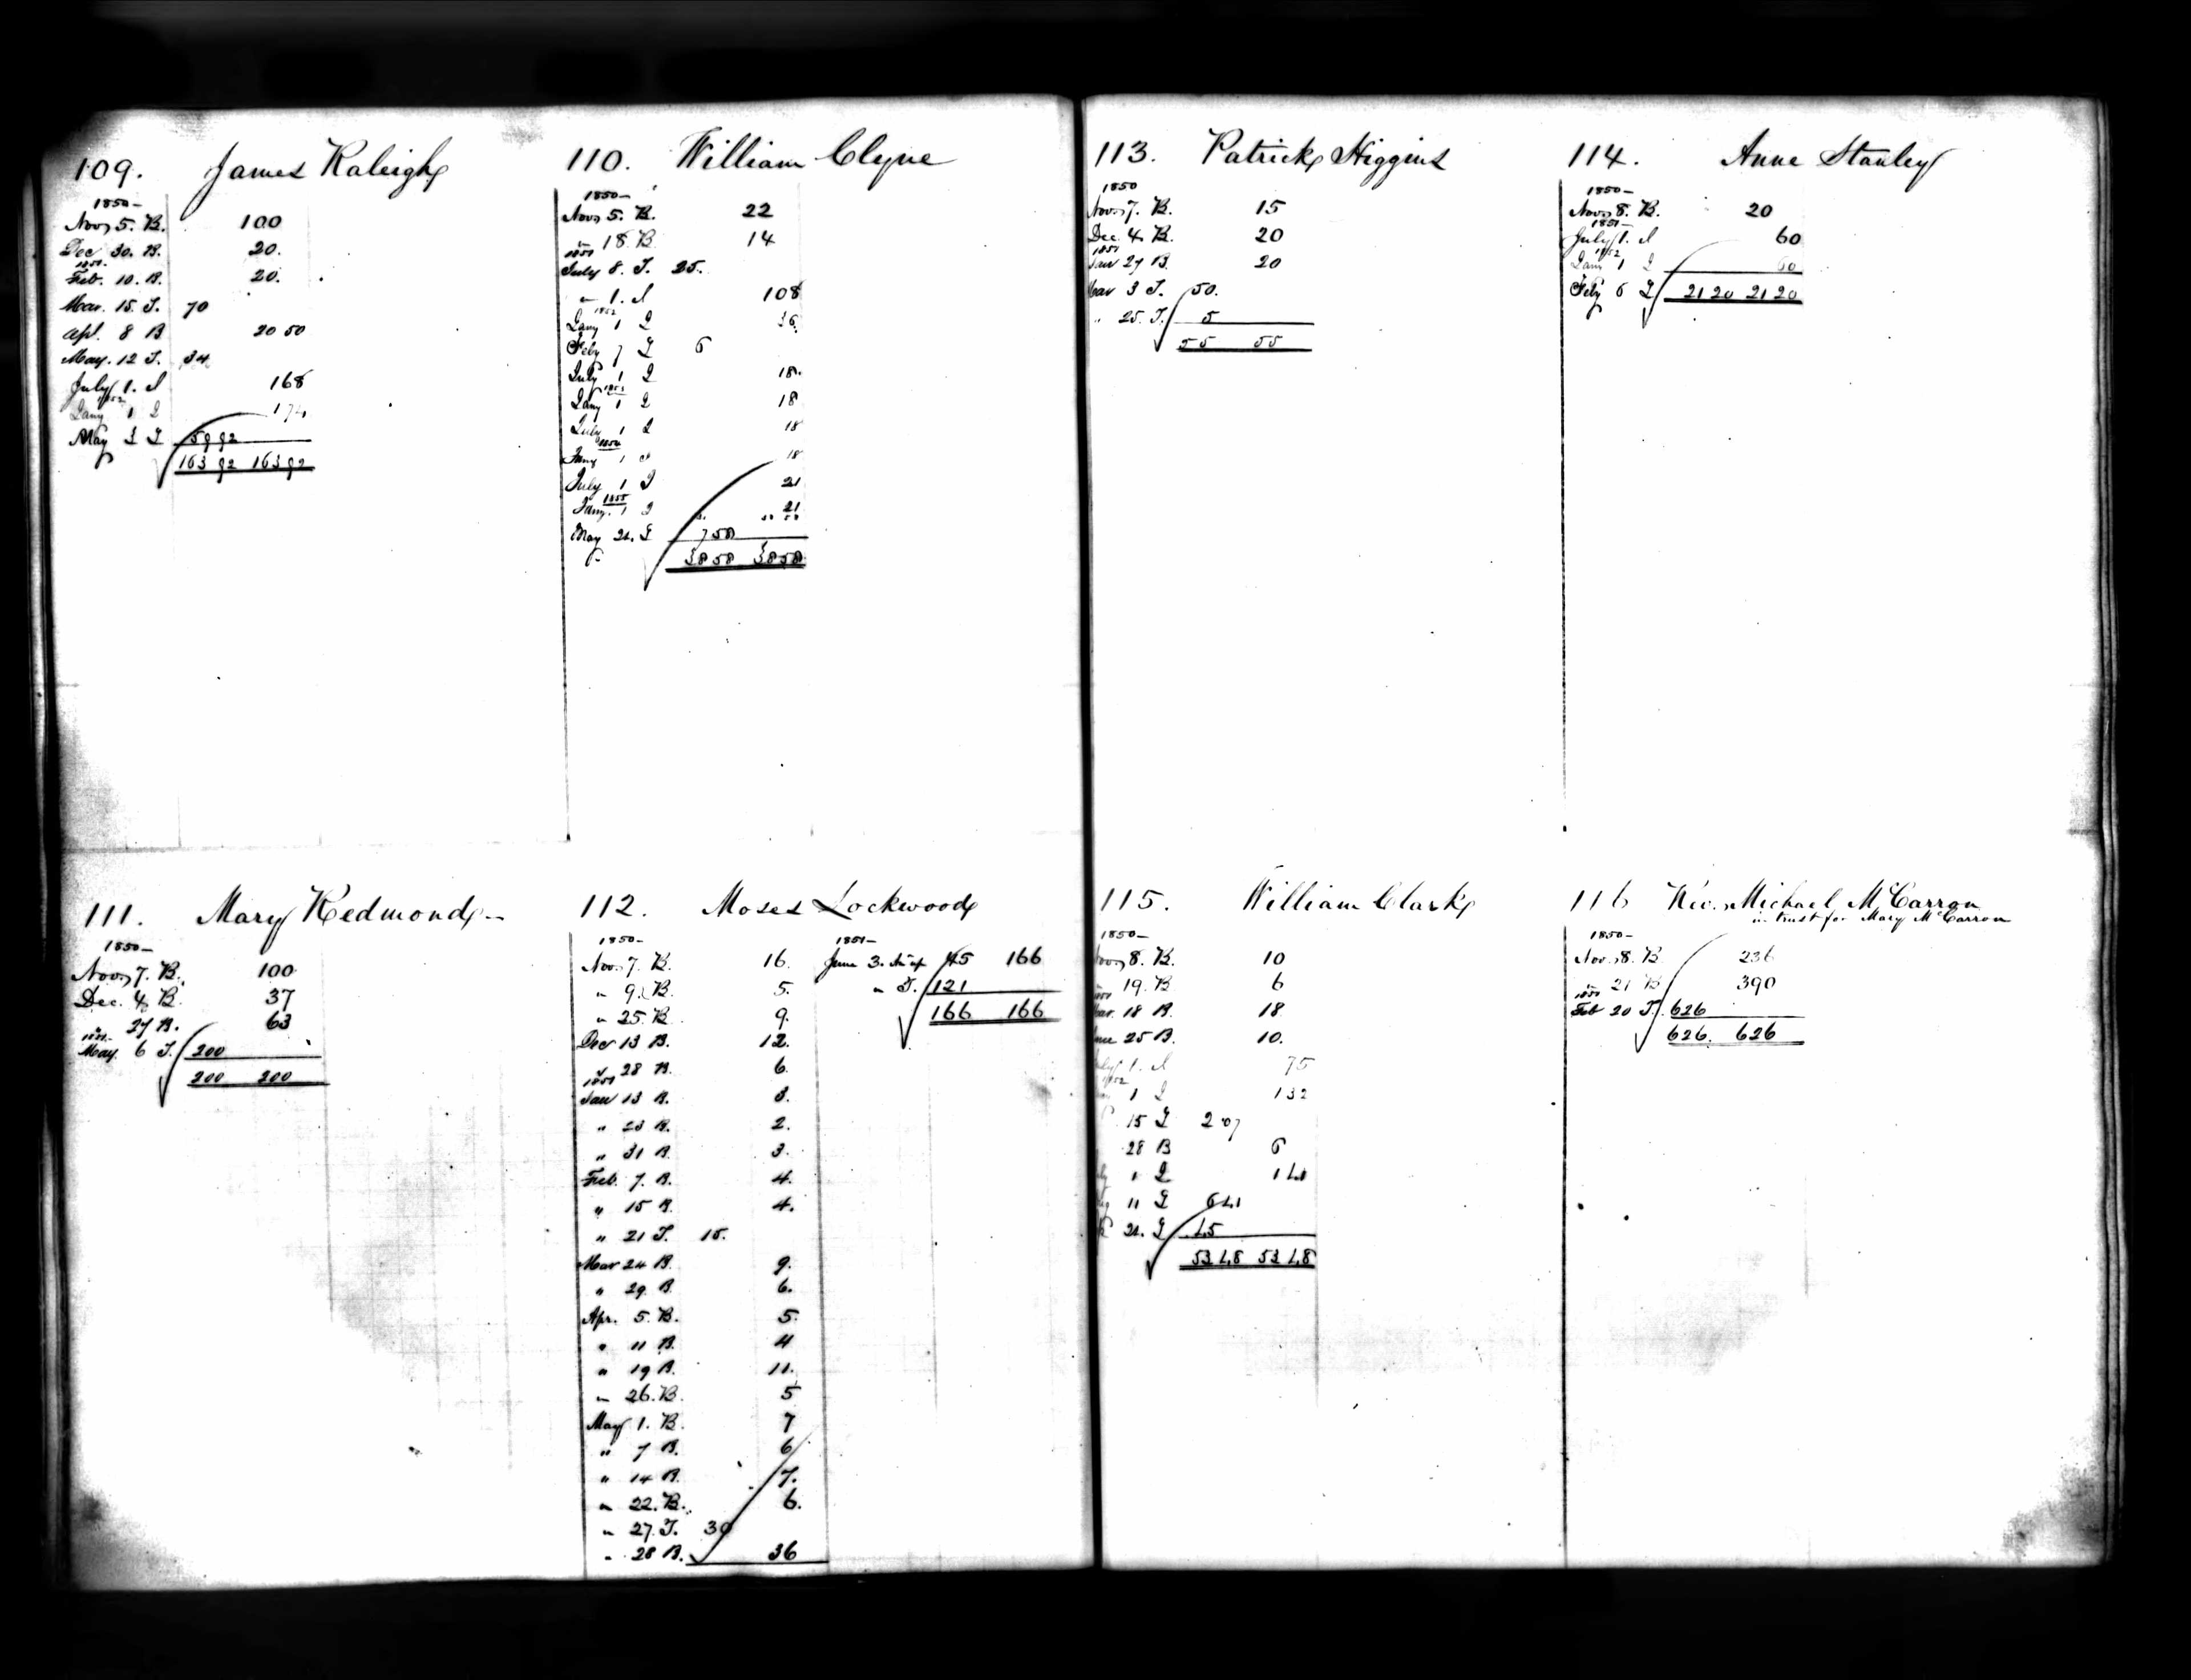 109. James Raleigh
1850-
Nov 5. B. 100
Dec 30. B. 20.
1851-
Feb. 10. B. 20.
Mar. 15. T. 70
Apl. 8 B 20 50
May. 12 T. 34
July 1. I 168
1852
Jany 1 I 174
May 3 T 59 92
163 92 163 92
110. William Clyne
1850-
Nov 5. B. 22
" 18 B 14
1851
July 8. T. 25.
" 1. I 108
1852
Jany 1 I 36
Feby 7 T 6
July 1 I 18
1853
Jany 1 I 18
July 1 I 18
1854
Jany 1 I 18
July 1 I 21
1855
Jany. 1 I 21
May 24. T 7 58
38 58 38 58
111. Mary Redmond-
1850-
Nov 7. B. 100
Dec. 4 B. 37
" 27 B. 63
1851-
May. 6 T. 200
200 200
112. Moses Lockwood
1850-
Nov. 7. B. 16.
" 9. B. 5.
" 25. B. 9.
Dec 13 B. 12.
" 28 B. 6.
1851
Jan 13 B. 3.
" 23 B. 2.
" 31 B. 3.
Feb. 7. B. 4.
" 15 B. 4.
" 21 T. 15.
Mar 24 B. 9.
" 29. B. 6.
Apr. 5. B. 5.
" 11 B. 4
" 19 B. 11.
" 26. B. 5
May 1. B. 7
" 7 B. 6
" 14 B. 7.
" 22. B. 6.
" 27. T. 30
" 28 B. 36
1851-
June 3. 45 166
" T. 121
166 166
113. Patrick Higgins
1850
Nov 7. B. 15
Dec. 4. B. 20
1851
Jan 27 B. 20
Mar 3 T. 50.
" 25. T. 5
55 55
114. Anne Stanley
1850-
Nov 8. B. 20
1851-
July 1. I 60
1852
Jany 1 I 60
Feby 6 T 21 20 21 20
115. William Clark
1850-
Nov 8. B. 10
" 19. B 6
1851
Mar. 18 B. 18
June 25 B. 10.
July 1. I 75
1852
1 I 132
15 T 2 07
28 B 6
1 I 141
11 T 6 41
24. T 45
53 48 53 48
116 Rev. Michael McCarron
in trust for Mary McCarron
1850-
Nov. 8. B 236
" 21 B 390
1851
Feb 20 T. 626
626. 626